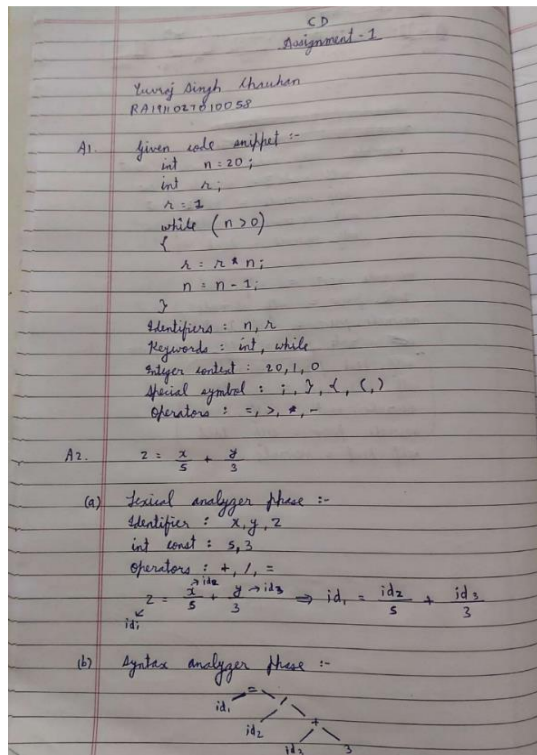 CD
Assignment - 1
Yuvraj Singh Chauhan
RA1911027010058
A1. Given code snippet :-
int n=20;
int r;
r = 1
while (n>0)
{
r = r * n;
n = n - 1;
}
Identifiers : n, r
Keywords : int, while
Integer contest : 20, 1, 0
Special symbol : ;, }, {, (, )
Operators : =, >, *, -
A2. z = x/5 + y/3
(a) Lexical analyzer phase :-
Identifier : x, y, z
int const : 5, 3
Operators : +, /, =
z = x/5 + y/3 ⇒ id1 = id2/5 + id3/3
→id2 →id3
id1
(b) Syntax analyzer phase :-
=
id1 /
id2 +
id3 3